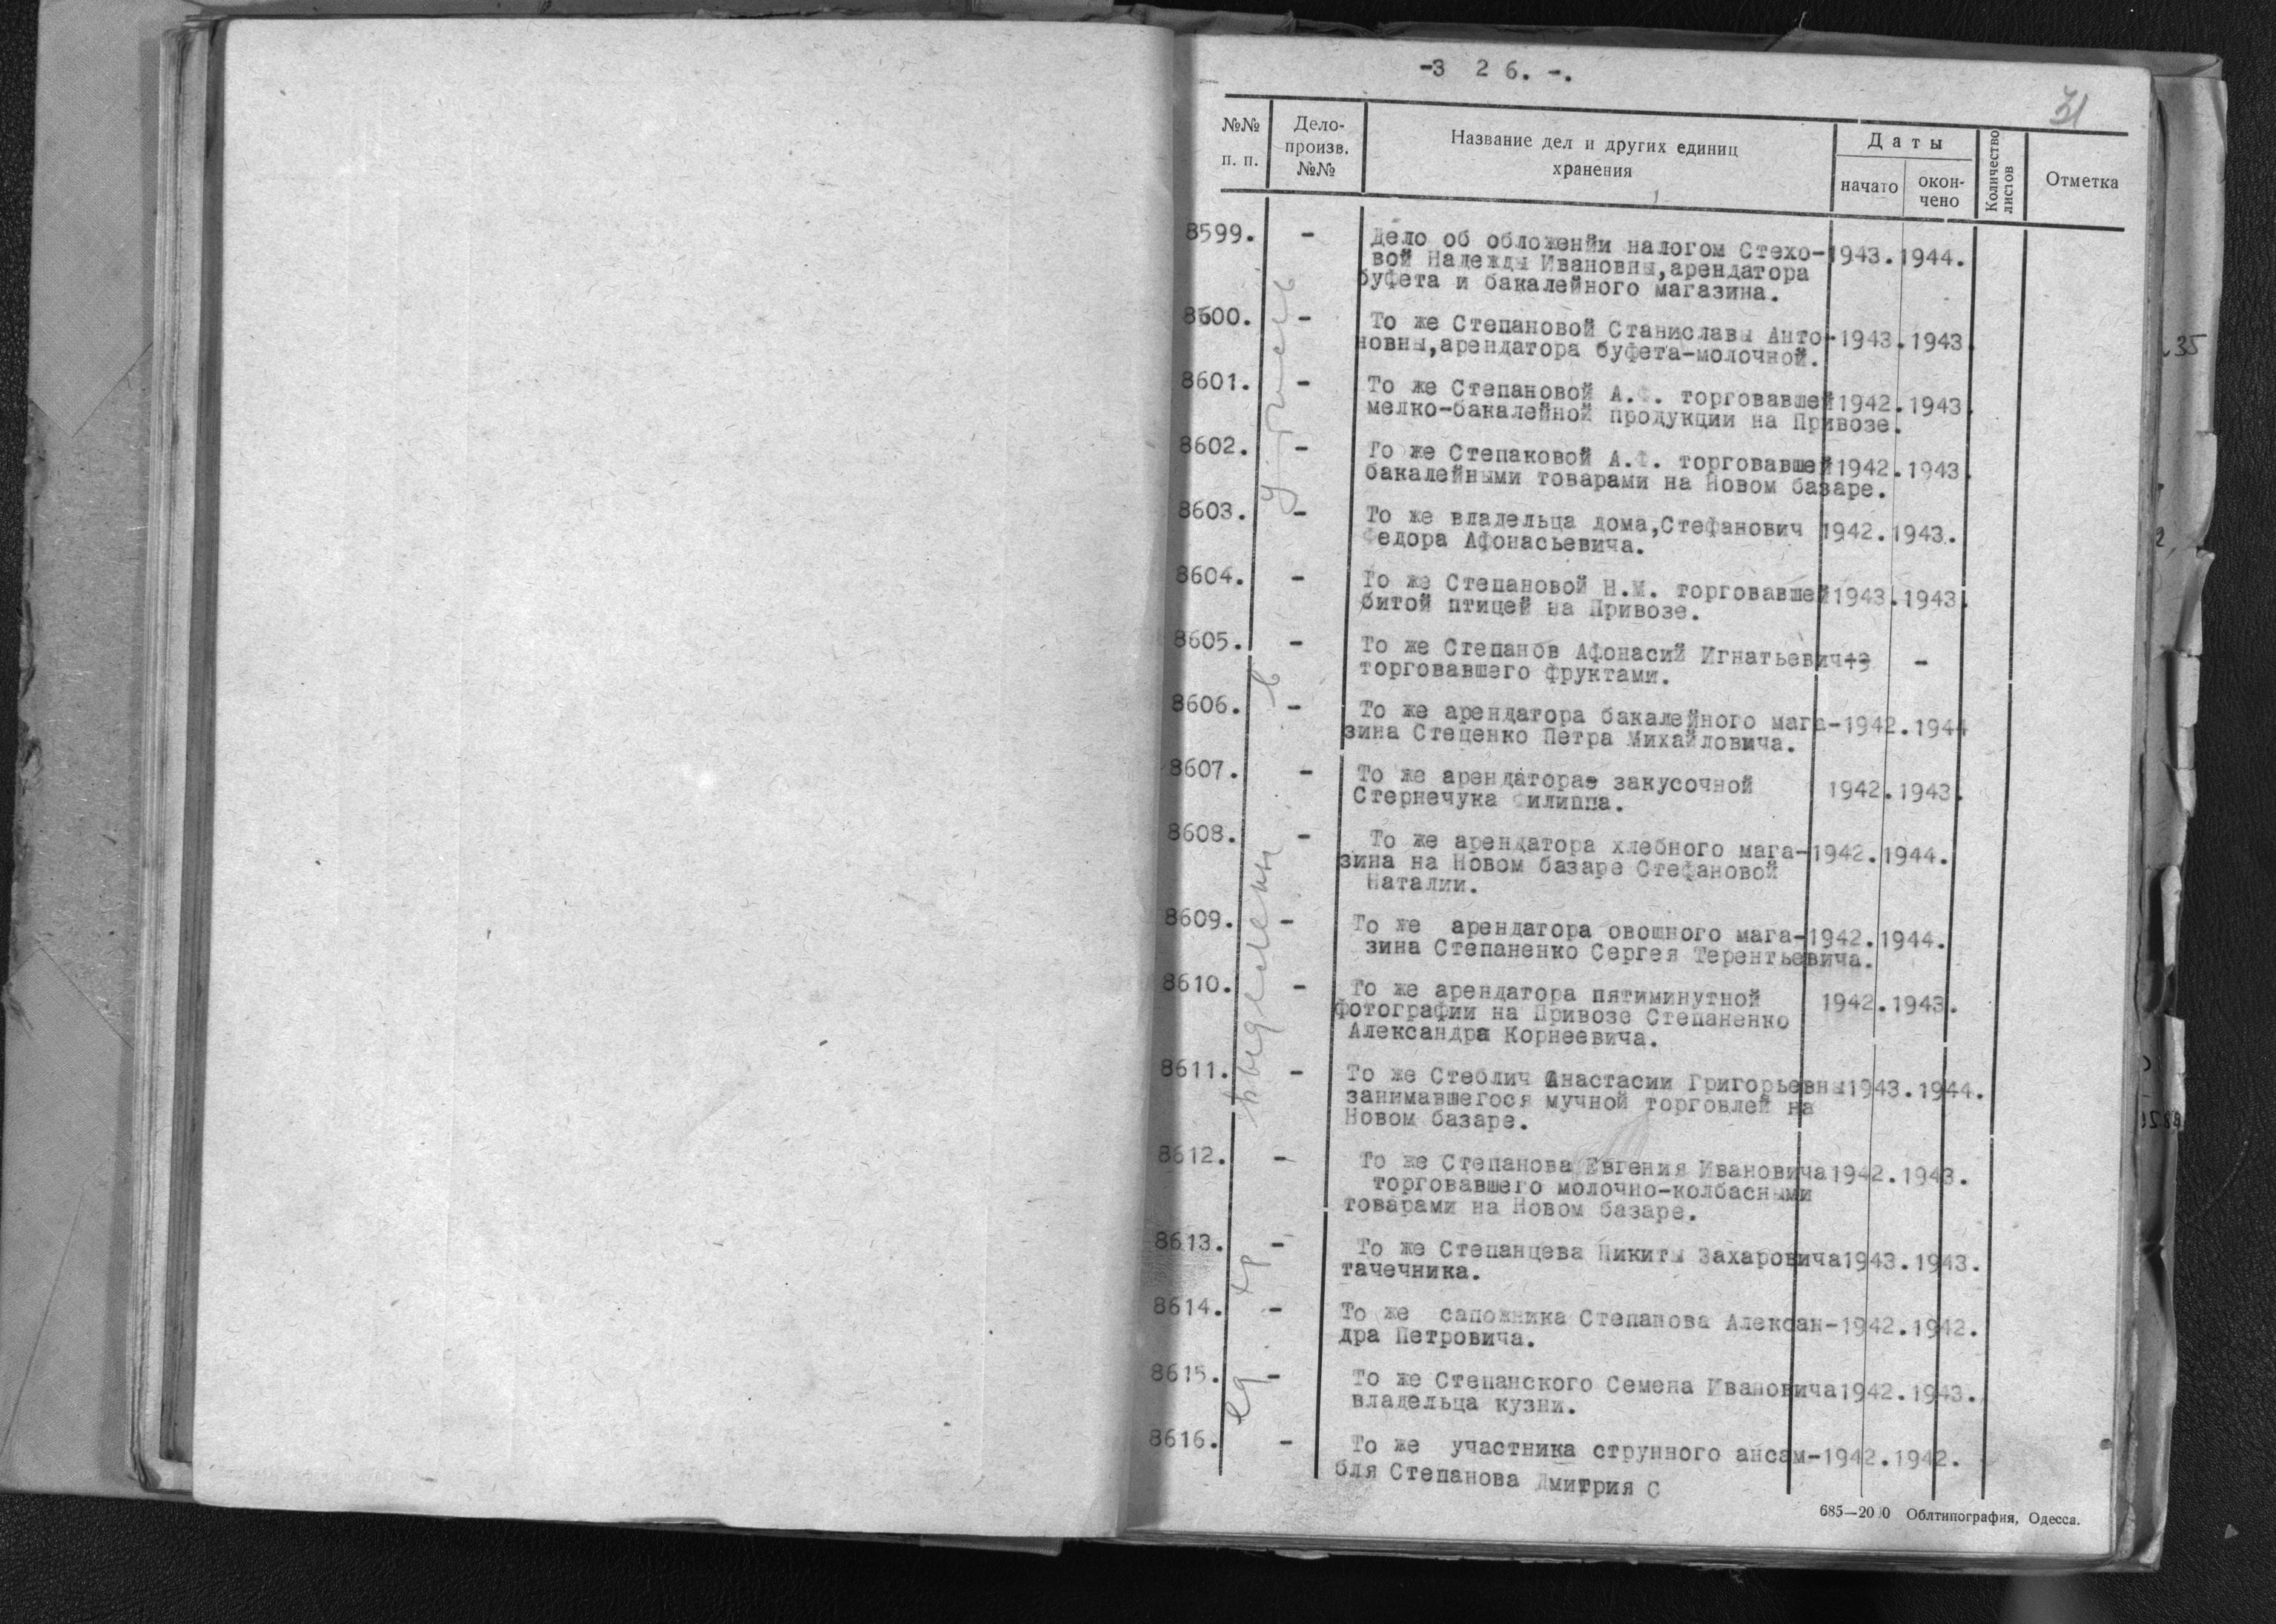 -3 2 6. -.
31
№№ п. п.
Дело-произв. №№
Название дел и других единиц хранения
Даты
начато
окон-чено
Количество листов
Отметка
8599. - Дело об обложенйи налогом Стехо-1943.1944.
вой Надежды Ивановны,арендатора
буфета и бакалейного магазина.
8600. - То же Степановой Станиславы Анто-1943.1943.
новны,арендатора буфета-молочной.
8601. - То же Степановой А.Ф. торговавшей1942.1943.
мелко-бакалейной продукции на Привозе.
8602. - То же Степаковой А.Ф. торговавшей1942.1943.
бакалейными товарами на Новом базаре.
8603. - То же владельца дома,Стефанович 1942.1943.
Федора Афонасьевича.
8604. - То же Степановой Н.М. торговавшей1943.1943.
битой птицей на Привозе.
8605. - То же Степанов Афонасий Игнатьевич -
торговавшего фруктами.
8606. - То же арендатора бакалейного мага-1942.1944
зина Стеценко Петра Михайловича.
8607. - То же арендатора закусочной 1942.1943.
Стернечука Филиппа.
8608. - То же арендатора хлебного мага-1942.1944.
зина на Новом базаре Стефановой
Наталии.
8609. - То же арендатора овощного мага-1942.1944.
зина Степаненко Сергея Терентьевича.
8610. - То же арендатора пятиминутной 1942.1943.
фотографии на Привозе Степаненко
Александра Корнеевича.
8611. - То же Стеблич Анастасии Григорьевны1943.1944.
занимавшегося мучной торговлей на
Новом базаре.
8612. - То же Степанова Евгения Ивановича1942.1943.
торговавшего молочно-колбасными
товарами на Новом базаре.
8613. - То же Степанцева Никиты Захаровича1943.1943.
тачечника.
8614. - То же сапожника Степанова Алексан-1942.1942.
дра Петровича.
8615. - То же Степанского Семена Ивановича1942.1943.
владельца кузни.
8616. - То же участника струнного ансам-1942.1942.
бля Степанова Дмитрия С
ед. хр. выделены в
685—20 0 Облтипография, Одесса.
35